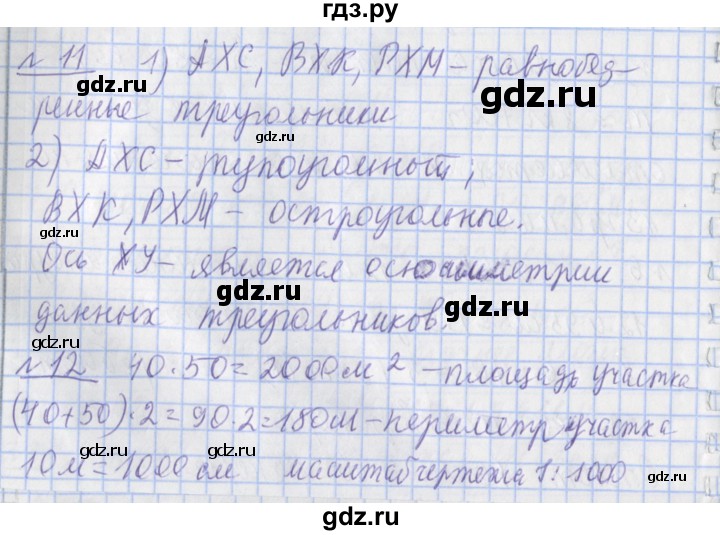 гдз.ру
№ 11 1) АХС, ВХК, РХМ – равнобед-
ренные треугольники
2) АХС – тупоугольный;
ВХК, РХМ – остроугольные.
Ось ХУ – является осью симметрии
данных треугольников.
№ 12 40·50=2000м² – площадь участка
(40+50)·2=90·2=180м – периметр участка
10м=1000см масштаб чертежа 1:1000
gdz.ru
gdz.ru
gdz.ru
gdz.ru
gdz.ru
gdz.ru
gdz.ru
gdz.ru
gdz.ru
gdz.ru
gdz.ru
gdz.ru